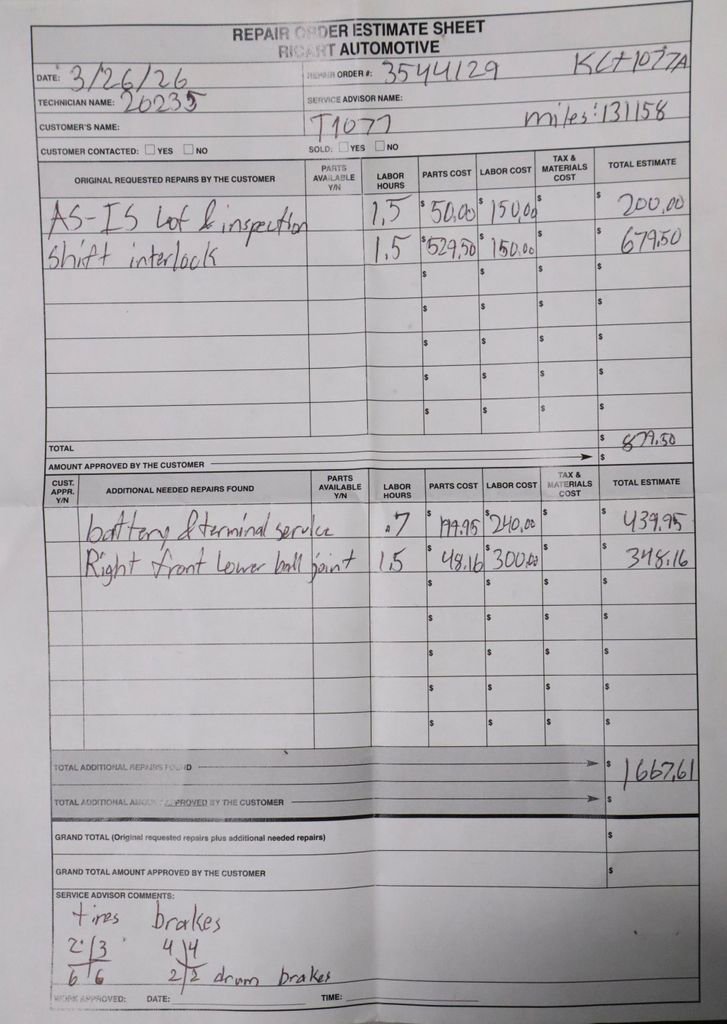 REPAIR ORDER ESTIMATE SHEET
RICART AUTOMOTIVE
DATE: 3/26/26 REPAIR ORDER #: 3544129 KLT1077A
TECHNICIAN NAME: 20235 SERVICE ADVISOR NAME:
CUSTOMER'S NAME: T1077 miles: 131158
CUSTOMER CONTACTED: YES NO SOLD: YES NO
ORIGINAL REQUESTED REPAIRS BY THE CUSTOMER PARTS AVAILABLE Y/N LABOR HOURS PARTS COST LABOR COST TAX & MATERIALS COST TOTAL ESTIMATE
AS-IS Lof & inspection 1.5 $50.00 $150.00 $ $200.00
Shift interlock 1.5 $529.50 $150.00 $ $679.50
$ $ $ $
$ $ $ $
$ $ $ $
$ $ $ $
$ $ $ $
TOTAL $ 879.50
AMOUNT APPROVED BY THE CUSTOMER $
CUST. APPR. Y/N ADDITIONAL NEEDED REPAIRS FOUND PARTS AVAILABLE Y/N LABOR HOURS PARTS COST LABOR COST TAX & MATERIALS COST TOTAL ESTIMATE
battery & terminal service .7 $199.95 $240.00 $ $439.95
Right front Lower ball joint 1.5 $48.16 $300.00 $ $348.16
$ $ $ $
$ $ $ $
$ $ $ $
$ $ $ $
$ $ $ $
TOTAL ADDITIONAL REPAIRS FOUND $ 1667.61
TOTAL ADDITIONAL AMOUNT APPROVED BY THE CUSTOMER $
GRAND TOTAL (Original requested repairs plus additional needed repairs) $
GRAND TOTAL AMOUNT APPROVED BY THE CUSTOMER $
SERVICE ADVISOR COMMENTS:
tires brakes
2 | 3 4 | 4
6 | 6 2 | 2 drum brakes
WORK APPROVED: DATE: TIME: